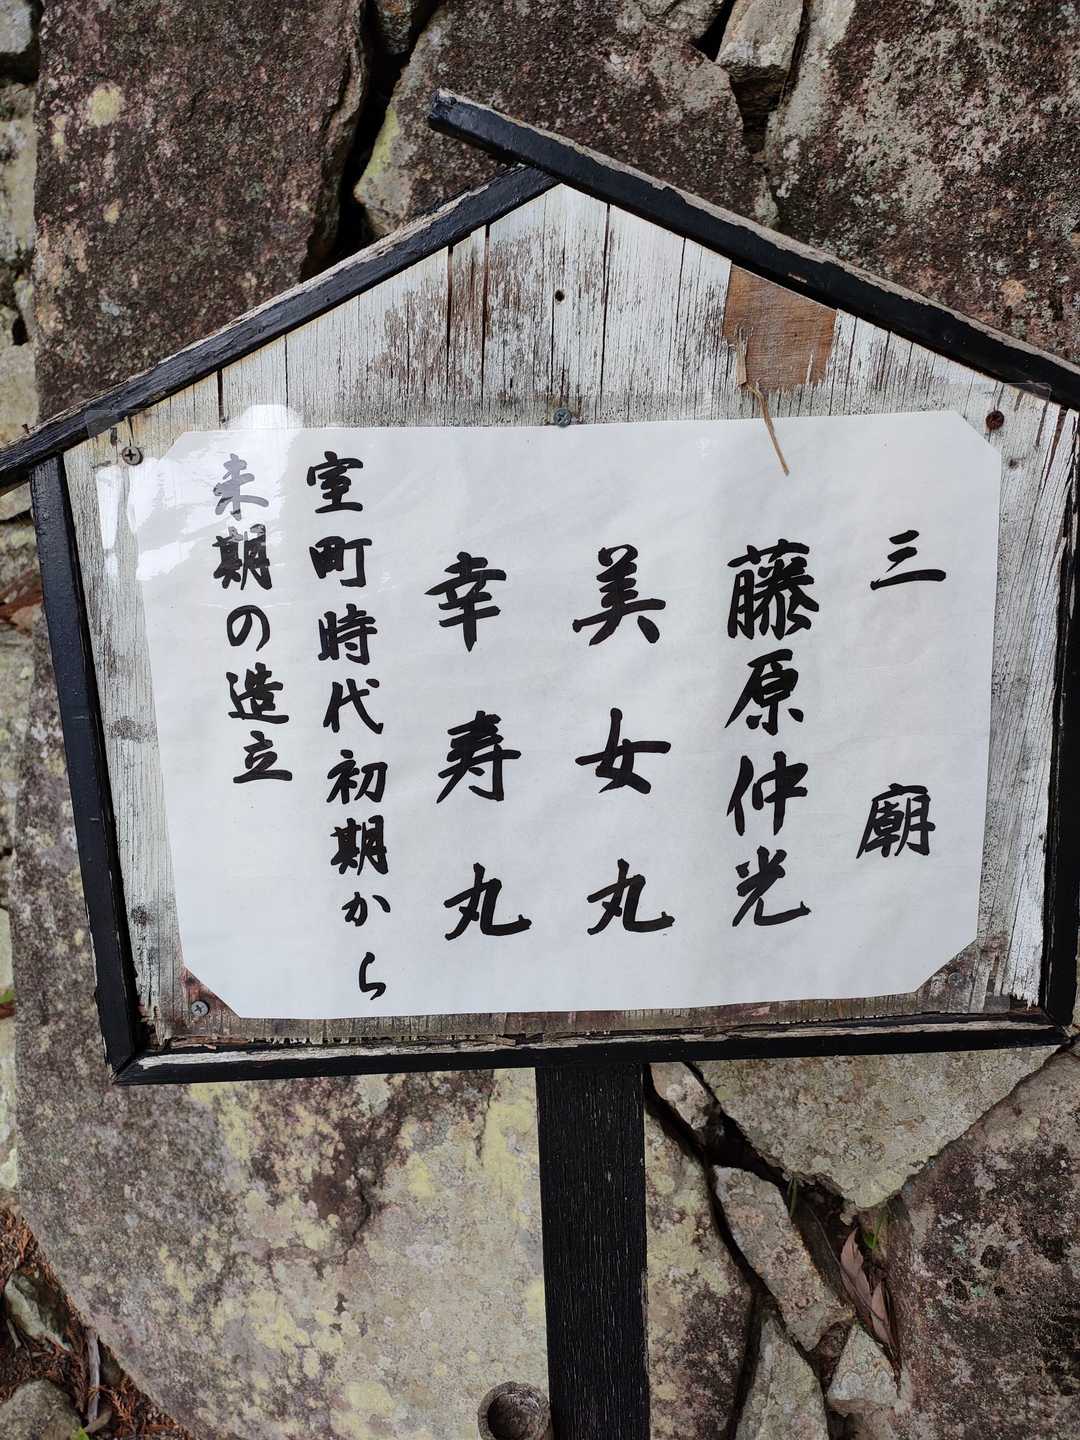 三廟
藤原仲光
美女丸
幸寿丸
室町時代初期から
末期の造立